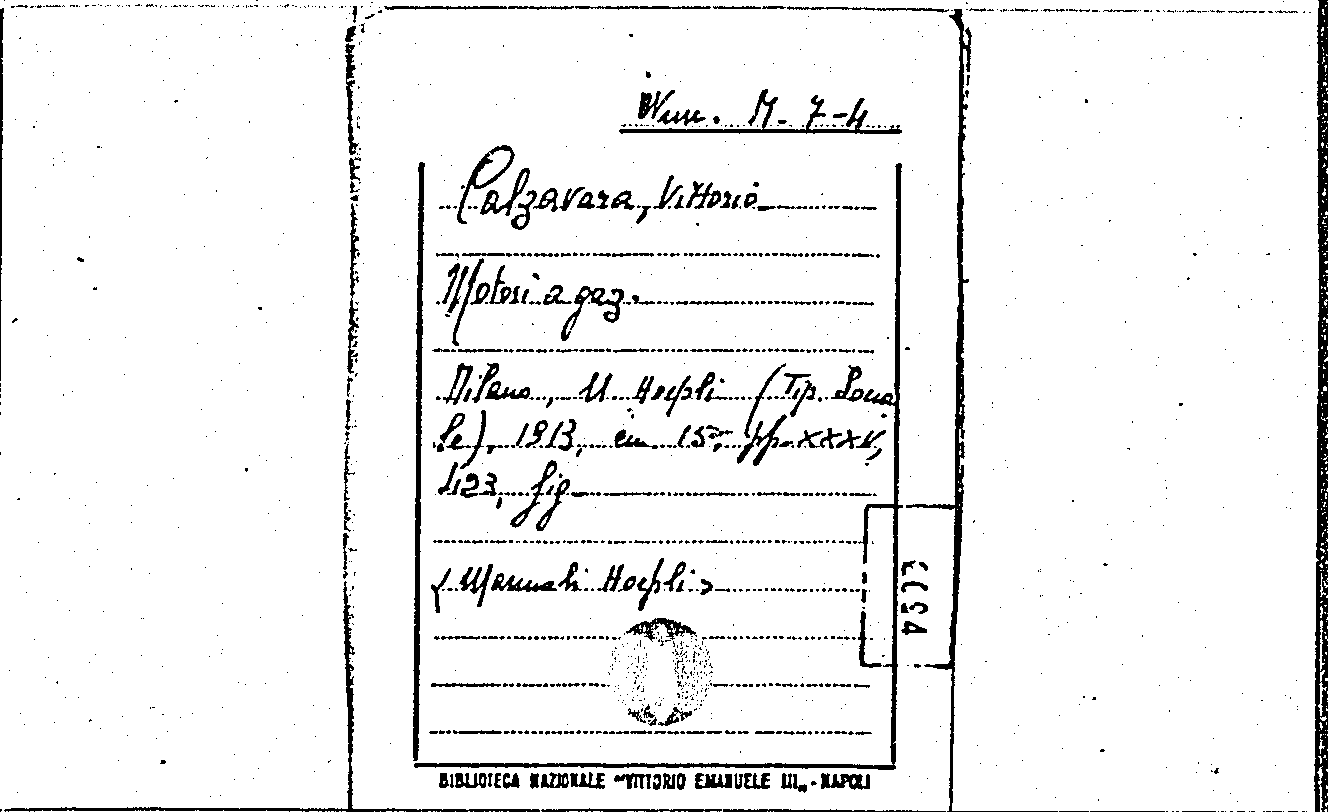 M. 7-4
Calzavara, Vittorio
Motori a gaz.
Milano, U. Hoepli (Tip. Socia
le), 1913, in 15°, pp. XXXV,
423, fig.
< Manuali Hoepli >
BIBLIOTECA NAZIONALE "VITTORIO EMANUELE III„ - NAPOLI